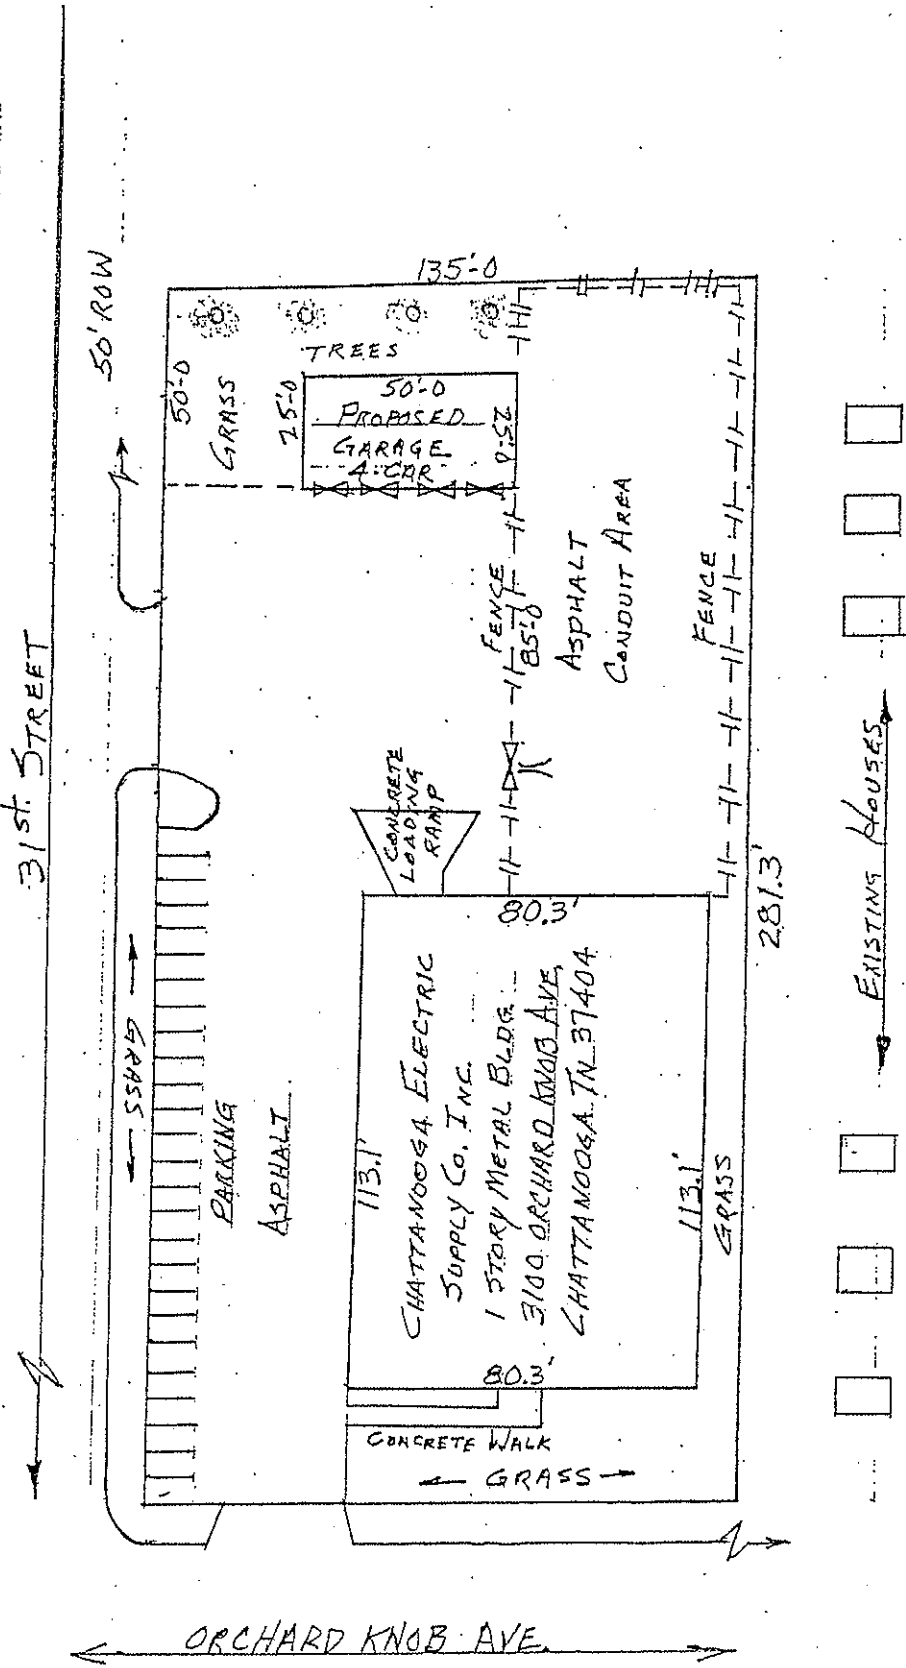 31st. STREET
50' ROW
135'-0
50'-0
GRASS
TREES
25'-0
50'-0
PROPOSED
GARAGE
4-CAR
25'-0
FENCE
85'-0
ASPHALT
CONDUIT AREA
FENCE
CONCRETE
LOADING
RAMP
GRASS
PARKING
ASPHALT
113.1'
80.3'
CHATTANOOGA ELECTRIC
SUPPLY CO. INC.
1 STORY METAL BLDG.
3100 ORCHARD KNOB AVE,
CHATTANOOGA TN 37404
113.1'
80.3'
GRASS
281.3'
CONCRETE WALK
GRASS
EXISTING HOUSES
ORCHARD KNOB AVE.